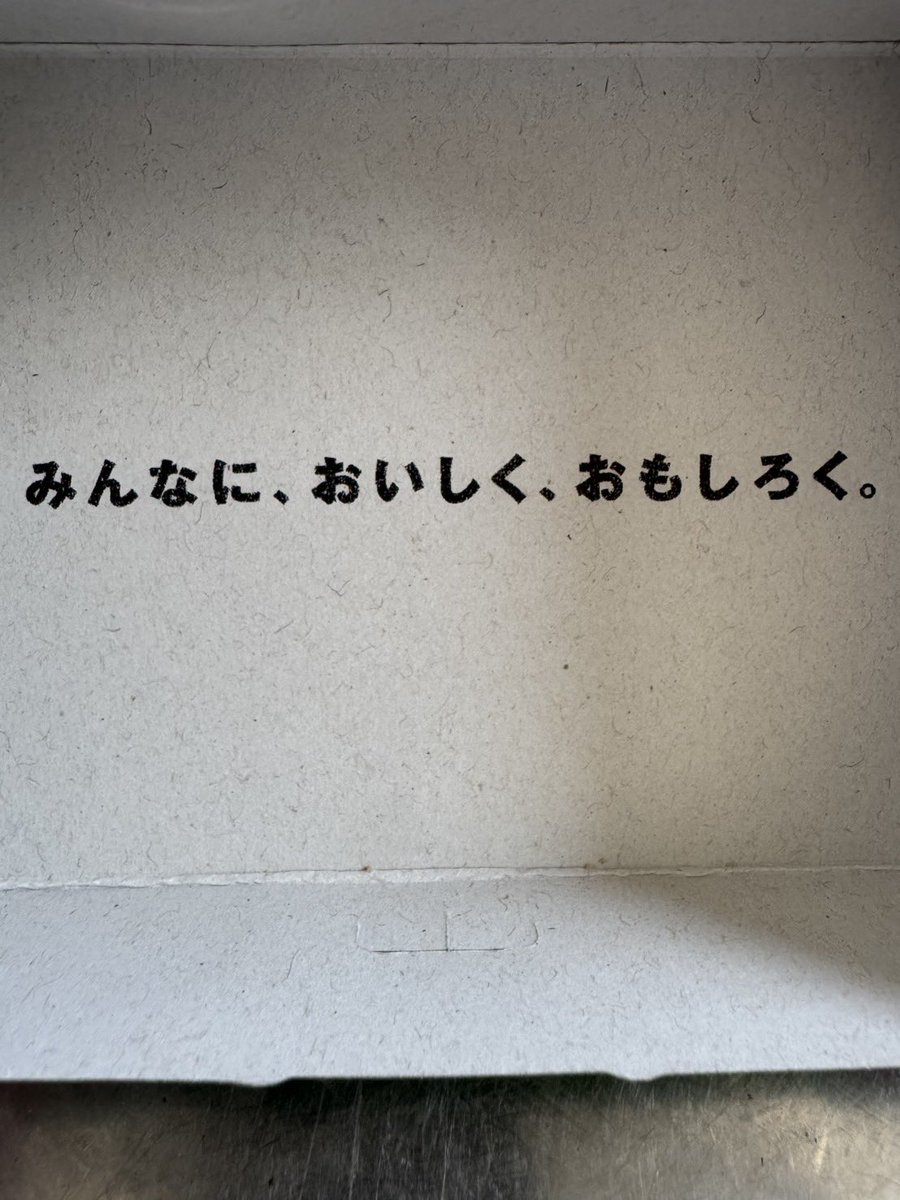 みんなに、おいしく、おもしろく。